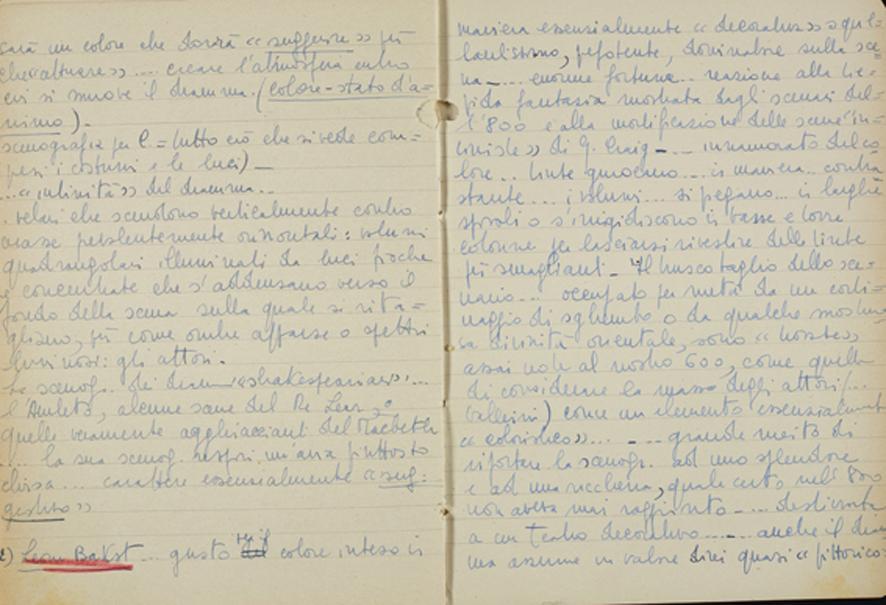 sarà un colore che dovrà « suggerire » più
che « attuare » .... creare l'atmosfera entro
cui si muove il dramma. (colore-stato d'a=
nimo).-
scenografia per C. = tutto ciò che si vede com=
presi i costumi e le luci)_
... « intimità » del dramma...
. velari che scendono verticalmente contro
masse prevalentemente orizzontali: volumi
quadrangolari illuminati da luci fioche
e concentrate che s'addensano verso il
fondo della scena sulla quale si sta=
gliano, più come ombre apparse o spettri
luminosi: gli attori.
La scenog. dei drammi « shakespeariani » ...
l'Amleto, alcune scene del Re Lear e
quelle veramente agghiaccianti del Macbeth
.... la sua scenog. respirò un'aria piuttosto
chiusa ... carattere essenzialmente « sug=
gestivo »
2) Leon Bakst ... gusto per il colore inteso in
maniera essenzialmente « decorativa » squil=
lantissimo, prepotente, dominatore sulla sce=
na_... enorme fortuna .. reazione alla tie=
pida fantasia mostrata dagli scenari del=
l'800 e alla modificazione delle scene « in=
timiste » di G. Craig _ ... innamorato del co
lore .. tinte giocano ... in maniera .. contra
stante .... i volumi ... si piegano ... in larghe
spirali o s'irrigidiscono in basse e
colonne per lasciarsi rivestire delle tinte
più smaglianti _ "Il brusco taglio dello sce=
nario ... occupato per metà da un corti=
naggio di sghembo o da qualche mostruo
sa divinità orientale, sono « »
assai note al nostro 600, come quella
di considerare la massa degli attori (...
ballerini) come un elemento essenzialmente
« coloristico » ... _ ... grande merito di
riportare la scenogr. ad uno splendore
e ad una ricchezza, quale certo nell'800
non aveva mai raggiunto ....
a un Teatro decorativo ... ... anche il dram
ma assume un valore direi quasi « pittorico